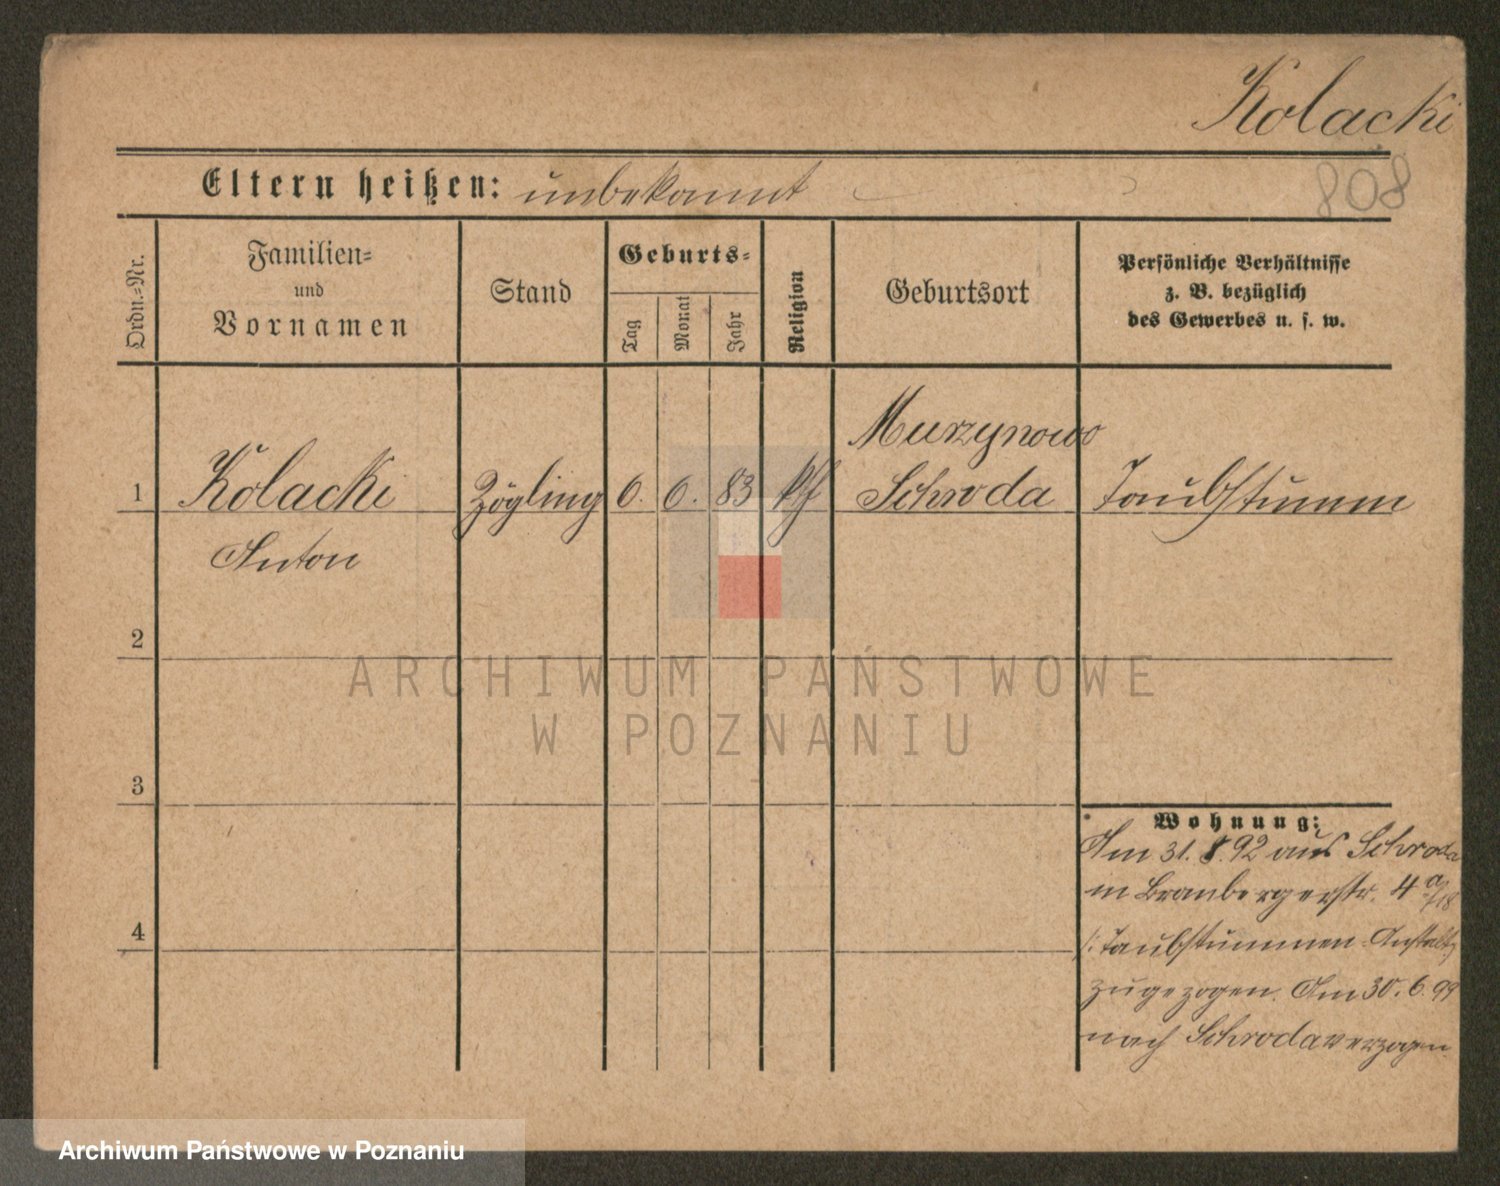 Kolacki
808
Eltern heißen: unbekannt
Ordn.-Nr.
Familien-
und
Vornamen
Stand
Geburts-
Tag
Monat
Jahr
Religion
Geburtsort
Persönliche Verhältnisse
z. B. bezüglich
des Gewerbes u. s. w.
Murzynowo
1 Kolacki Zögling 6. 6. 83 Schroda Taubstumm
Anton
2
ARCHIWUM PAŃSTWOWE
W POZNANIU
3
Wohnung:
Am 31. 8. 92 aus Schroda
in 4
Taubstummen-Anstalt
zugezogen. Am 30. 6. 99
nach Schroda verzogen
4
Archiwum Państwowe w Poznaniu